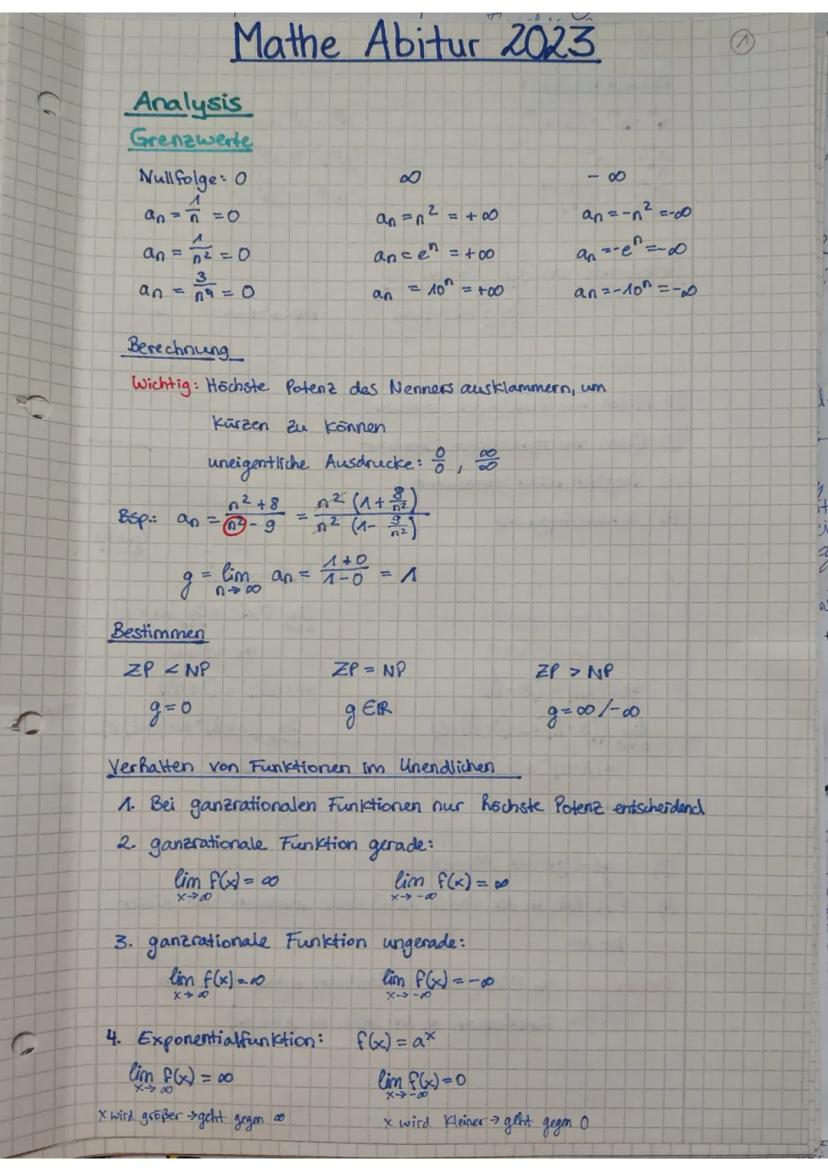 Mathe Abitur 2023
1
Analysis
Grenzwerte
Nullfolge: 0    ∞    - ∞
an = 1/n = 0    an = n² = + ∞    an = -n² = -∞
an = 1/n² = 0    an = eⁿ = +∞    an = -eⁿ = -∞
an = 3/n⁴ = 0    an = 10ⁿ = +∞    an = -10ⁿ = -∞
Berechnung
Wichtig: Höchste Potenz des Nenners ausklammern, um
kürzen zu können
uneigentliche Ausdrucke: 0/0 , ∞/∞
Bsp.: an = (n² + 8)/(n² - 9) = (n² (1 + 8/n²))/(n² (1 - 9/n²))
g = lim n→∞ an = (1+0)/(1-0) = 1
Bestimmen
ZP < NP    ZP = NP    ZP > NP
g = 0    g ∈ ℝ    g = ∞ / -∞
Verhalten von Funktionen im Unendlichen
1. Bei ganzrationalen Funktionen nur höchste Potenz entscheidend
2. ganzrationale Funktion gerade:
lim x→∞ f(x) = ∞    lim x→-∞ f(x) = ∞
3. ganzrationale Funktion ungerade:
lim x→∞ f(x) = ∞    lim x→-∞ f(x) = -∞
4. Exponentialfunktion: f(x) = aˣ
lim x→∞ f(x) = ∞    lim x→-∞ f(x) = 0
x wird größer → geht gegen ∞    x wird kleiner → geht gegen 0